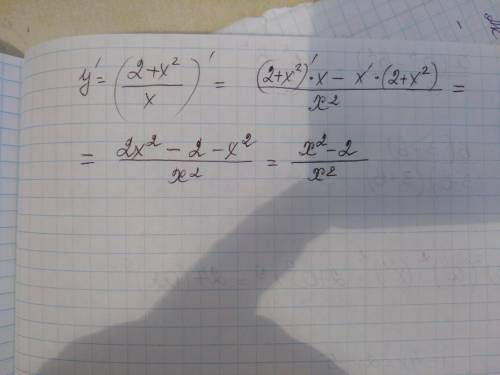 y' = ((2+x²)/x)' = ((2+x²)'·x − x'·(2+x²))/x² =
= (2x² − 2 − x²)/x² = (x² − 2)/x²